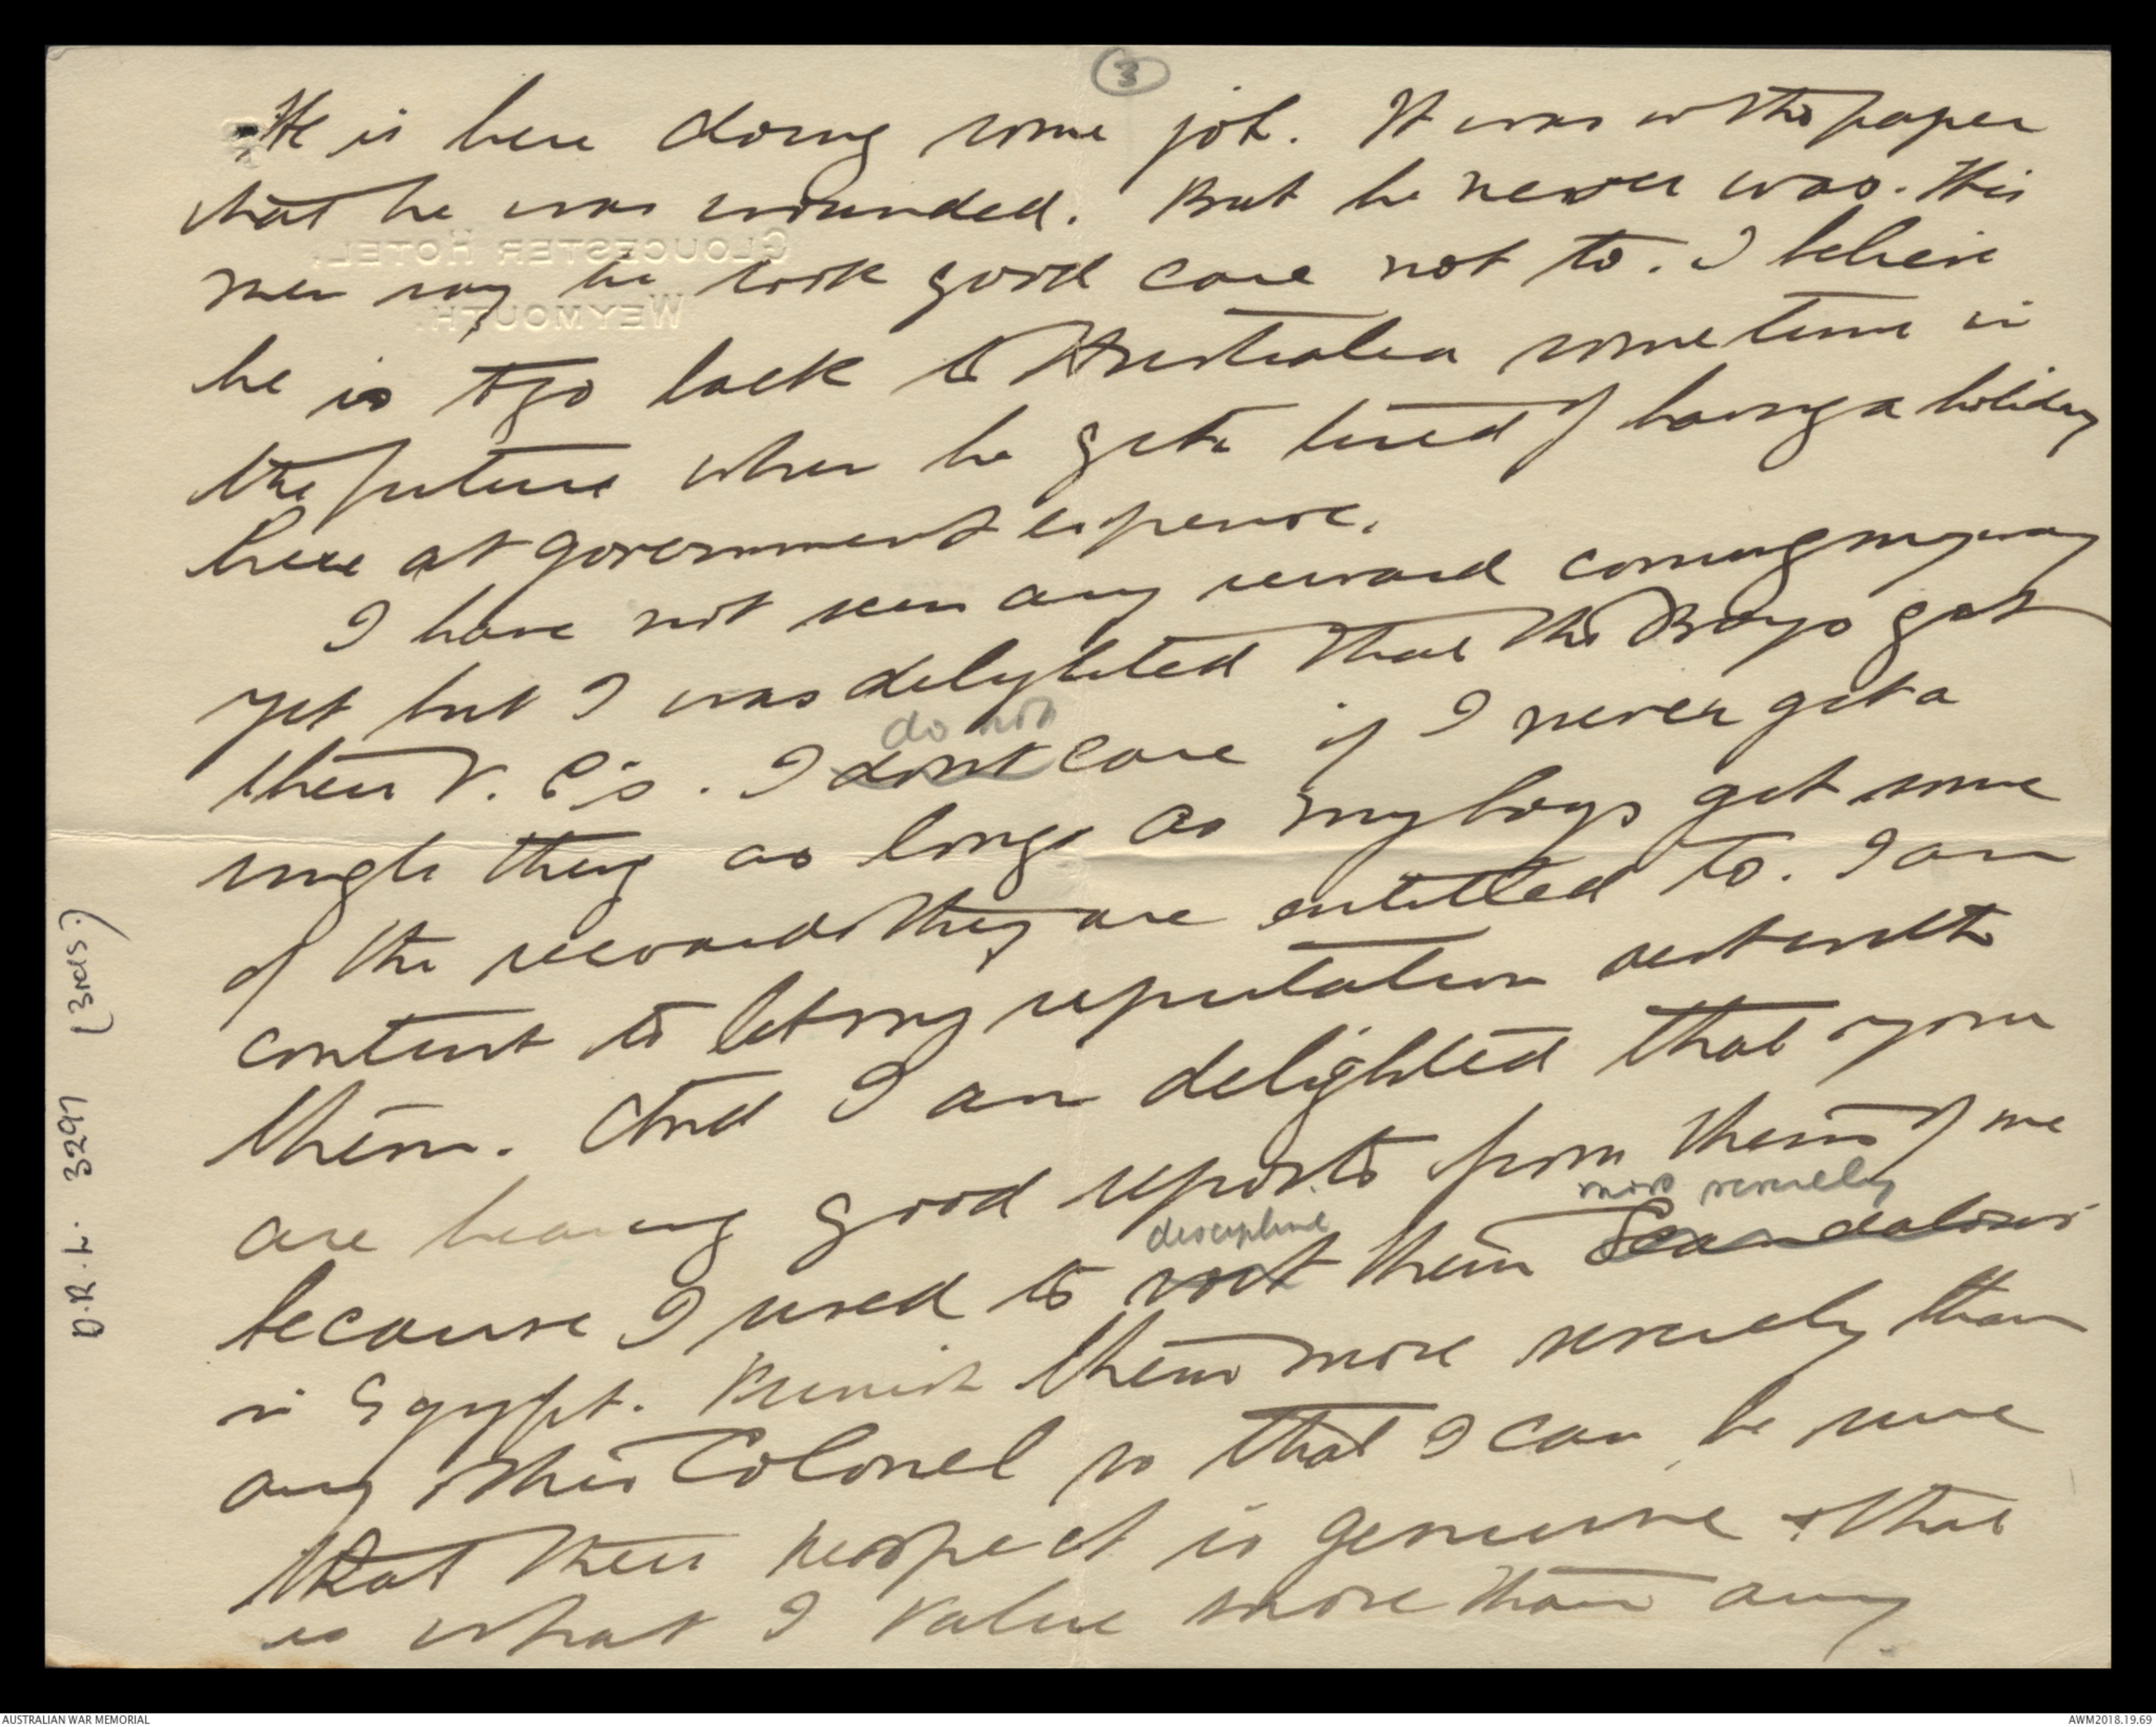 3
He is here doing some job. It was in the paper
that he was wounded. But he never was. His
GLOUCESTER HOTEL,
men say he took good care not to. I believe
WEYMOUTH.
he is to go back to Australia some time in
the future when he gets tired of having a holiday
here at government expense.
I have not seen any reward coming my way
yet but I was delighted that the Boys got
do not
their V.C's. I dont care if I never get a
single thing as long as my boys get some
of the rewards they are entitled to. I am
content to let my reputation rest with
them. And I am delighted that you
are hearing good reports from them of me
discipline most severely
because I used to them Scandalous
in Egypt. Punish them more severely than
any other Colonel so that I can be sure
that their respect is genuine & that
is what I value more than any
D.R.L. 3297 (3RDS.)
AUSTRALIAN WAR MEMORIAL
AWM2018.19.69